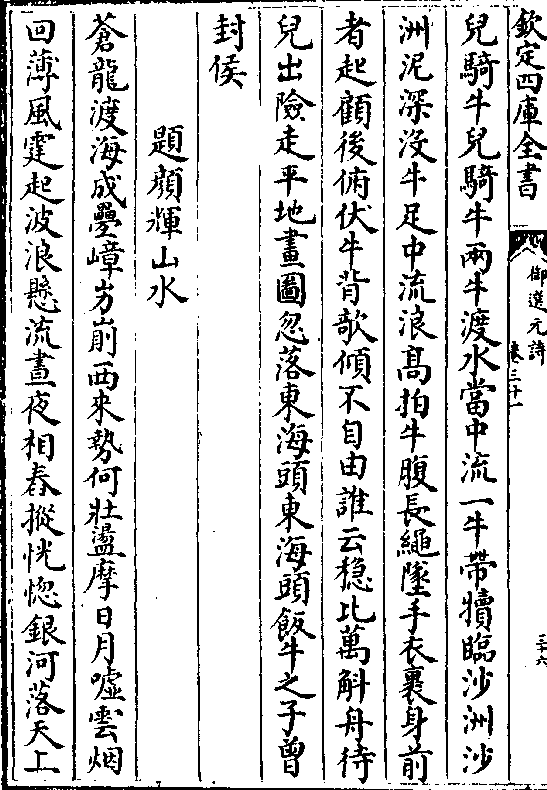 欽定四庫全書
御選元詩
卷三十一
三十六
兒騎牛兒騎牛兩牛渡水當中流一牛帶犢臨沙洲沙
洲泥深沒牛足中流浪高拍牛腹長繩墜手衣裹身前
者起顧後俯伏牛背欹傾不自由誰云穩比萬斛舟待
兒出險走平地畫圖忽落東海頭東海頭飯牛之子曾
封侯
題顔輝山水
蒼龍渡海成疊嶂岝崱西來勢何壯盪摩日月噓雲烟
回薄風霆起波浪懸流晝夜相舂摐恍惚銀河落天上